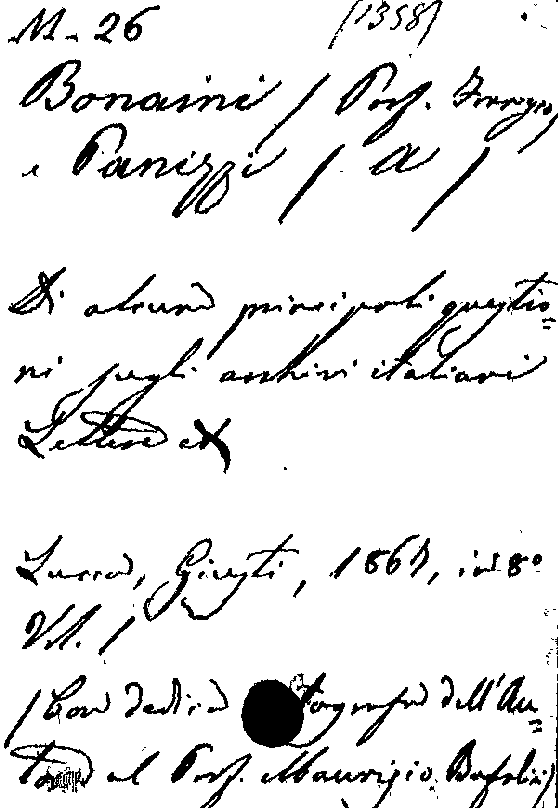 M-26 (1358)
Bonaini / Prof. Franc.
e Panizzi / A /
Di alcune principali questio=
ni sugli archivi italiani
Lettere
Lucca, Giusti, 1867, in 8º
Vol. 1
(Con dedica tografa dell'Au=
tore al Prof. Maurizio Bufalini)